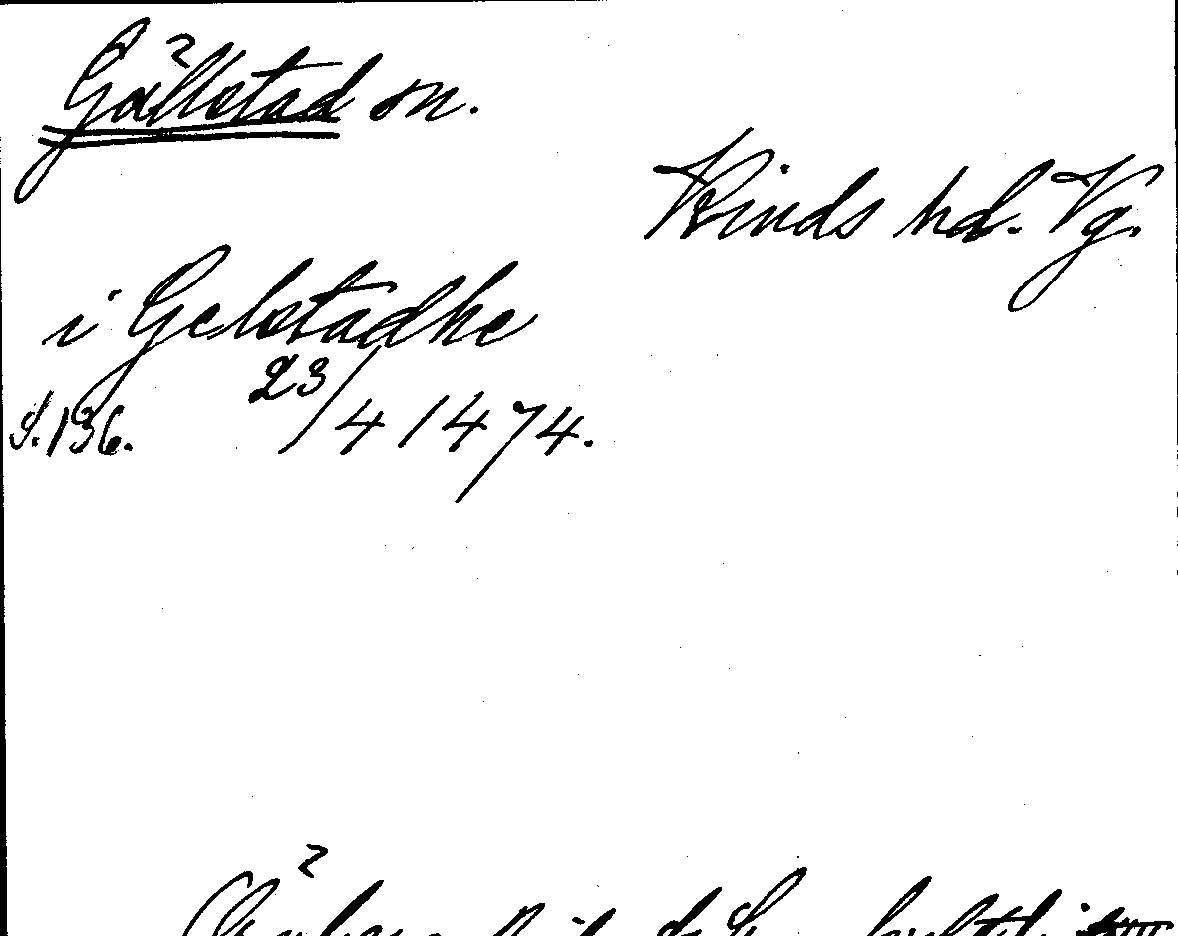 Gällstad sn.
Kinds hd. Vg.
i Gelstadhe
23/4 1474.
S. 136.